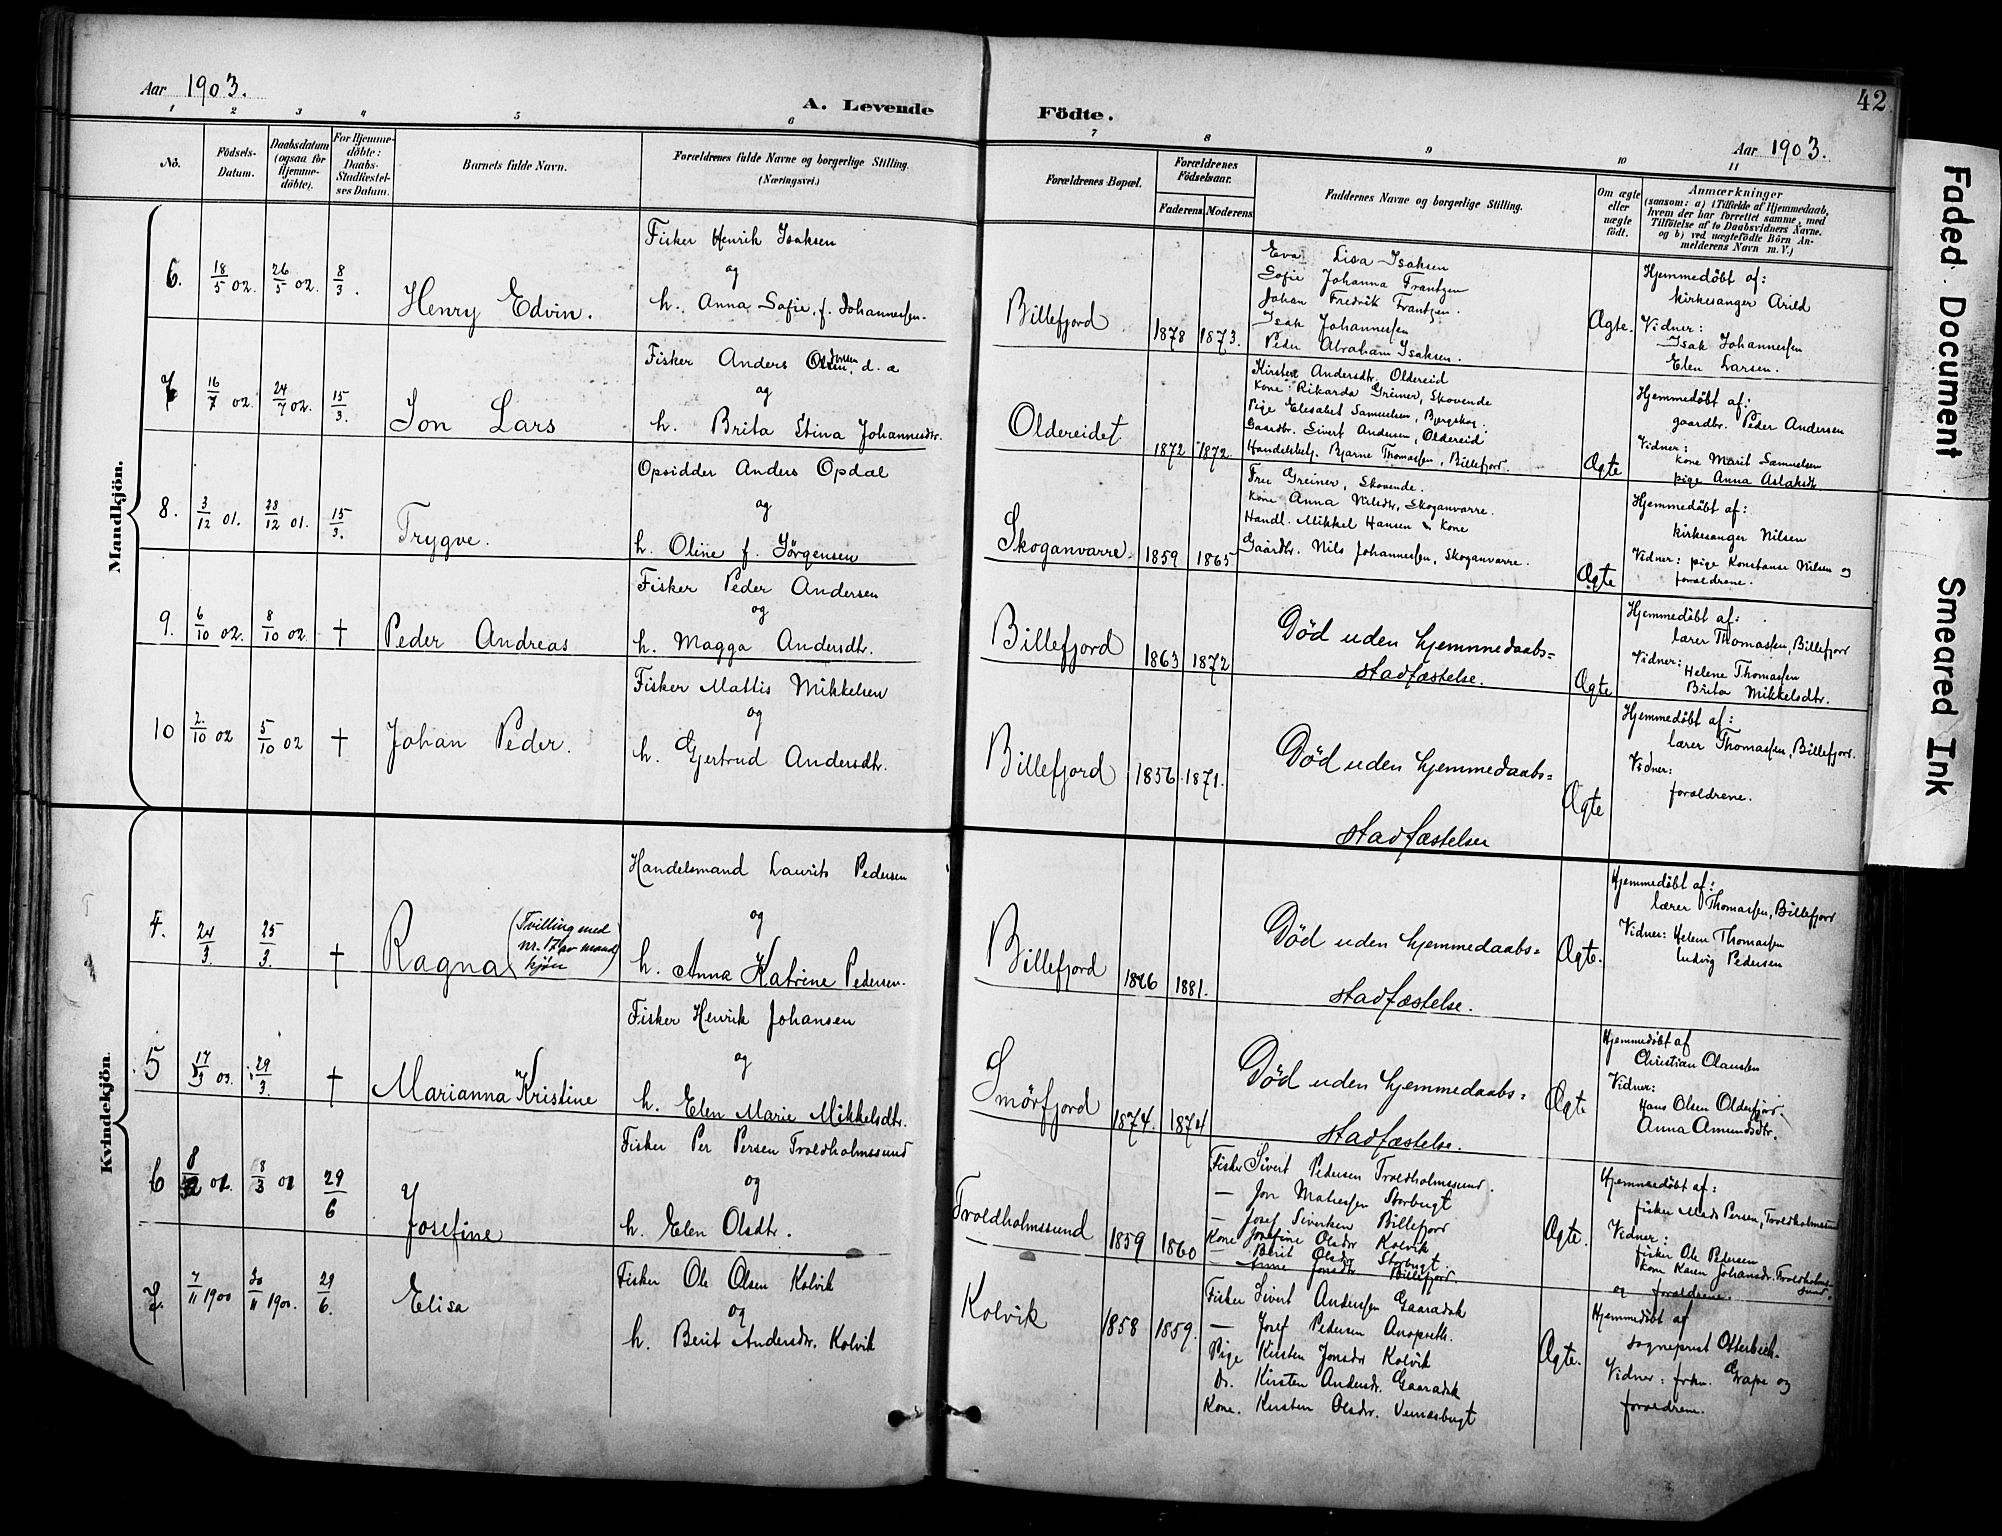 Aar 1903.
A. Levende
Födte.
42
Aar 1903.
1 2 3 4 5 6 7 8 9 10 11
No.
Födsels-Datum.
Daabsdatum (ogsaa for Hjemme-döbte).
For Hjemme-döbte: Daabs-Stadfæstel-ses Datum.
Barnets fulde Navn.
Forældrenes fulde Navne og borgerlige Stilling.
(Næringsvei.)
Forældrenes Bopæl.
Forældrenes Födselsaar.
Faderens Moderens
Faddernes Navne og borgerlige Stilling.
Om ægte eller uægte födt.
Anmærkninger
(saasom: a) i Tilfælde af Hjemmedaab,
hvem der har forrettet samme, med
Tilföielse af to Daabsvidners Navne,
og b) ved uægtefödte Börn An-
melderens Navn m. V.)
Mandkjön.
6.
18/5 02.
26/5 02.
8/3.
Henry Edvin.
Fisker Henrik Isaksen
og
h. Anna Sofie, f. Johannesen.
Billefjord
1878 1873.
Eva Lisa Isaksen
Sofie Johanna Frantzen
Johan Fredrik Frantzen.
Isak Johannessen
Peder Abraham Isaksen.
Ægte.
Hjemmedøbt af:
kirkesanger Arild
Vidner:
Isak Johannessen
Elen Larsen.
7
16/7 02.
24/7 02.
15/3.
Jon Lars
Fisker Anders Olsen, d. a
og
h. Brita Stina Johannesdtr.
Oldereidet
1872 1872
Kirsten Andersdtr, Oldereid
Kone Rikarda Greiner, Skovende
Pige Elesabet Samuelsen,
Gaardbr. Sivert Andersen, Oldereid
Handelsbetj. Bjarne Thomassen, Billefjord.
Ægte
Hjemmedøbt af:
gaardbr. Peder Andersen
Vidner:
kone Marit Samuelsen
pige Anna Aslaksdtr
8.
3/12 01.
28/12 01.
15/3.
Trygve.
Opsidder Anders Opdal
og
h. Oline f. Jörgensen
Skoganvarre.
1859 1865
Fru Greiner, Skovende.
Kone Anna Nilsdtr, Skoganvarre.
Handl. Mikkel Hansen & kone
Gaardbr. Nils Johannessen, Skoganvarre.
Ægte
Hjemmedøbt af:
kirkesanger Nilsen
Vidner: pige Konstanse Nilsen og
forældrene.
9.
6/10 02.
8/10 02.
†
Peder Andreas
Fisker Peder Andersen
og
h. Magga Andersdtr.
Billefjord
1863 1872
Död uden hjemmedaabs=
stadfæstelse.
Ægte
Hjemmedøbt af:
lærer Thomassen, Billefjord
Vidner:
Helene Thomassen
Brita Mikkelsdtr.
10
2/10 02
5/10 02
†
Johan Peder.
Fisker Mattis Mikkelsen
og
h. Gjertrud Andersdtr.
Billefjord
1856. 1871.
Död uden hjemmedaabs=
stadfæstelse
Ægte
Hjemmedøbt af:
lærer Thomassen, Billefjord.
Vidner:
forældrene.
Kvindekjön.
4.
24/3.
25/3.
†
Ragna
(Tvilling med
nr. 17 av mand
kjön)
Handelsmand Laurits Pedersen
og
h. Anna Katrine Pedersen.
Billefjord
1881.
Död uden hjemmedaabs=
stadfæstelse.
Ægte.
Hjemmedøbt af:
lærer Thomassen, Billefjord
Vidner: Helene Thomassen
Ludvig Pedersen
5
17/3 03.
29/3.
†
Marianna Kristine
Fisker Henrik Johansen
og
h. Elen Marie Mikkelsdtr.
Smörfjord
1874. 1874
Död uden hjemmedaabs=
stadfæstelse.
Ægte
Hjemmedøbt af
Christian Olaussen
Vidner:
Hans Olsen Olderfjord.
Anna Amundsdtr.
6
8/3
29/6
Josefine
Fisker Per Persen Troldholmssund
og
h. Elen Olsdtr.
Troldholmssund
1859 1860
Fisker Sivert Pedersen Troldholmssund.
— Jon Mathessen Storbugt
— Josef Sivertsen Billefjord
Kone Josefine Olsdtr Kolvik
— Berit Olsdtr Storbugt.
— Anne Jonsdtr Billefjord.
Ægte.
Hjemmedøbt af:
fisker Mads Persen, Troldholmssund
Vidner:
fisker Ole Pedersen
kone Karen Johansdtr. Troldholms-
sund.
og forældrene.
7.
7/11 1900
30/11 1900.
29/6.
Elisa
Fisker Ole Olsen Kolvik
og
h. Berit Andersdtr. Kolvik
Kolvik
1858 1859.
Fisker Sivert Andersen
— Josef Pedersen
Pige Kirsten Jonsdtr Kolvik
Do. Kirsten Andersdtr.
Kone. Kirsten Olsdtr.
Ægte.
Hjemmedøbt af
sogneprest Otterbech.
Vidner: frkn. Grape og
forældrene.
Faded Document Smeared Ink